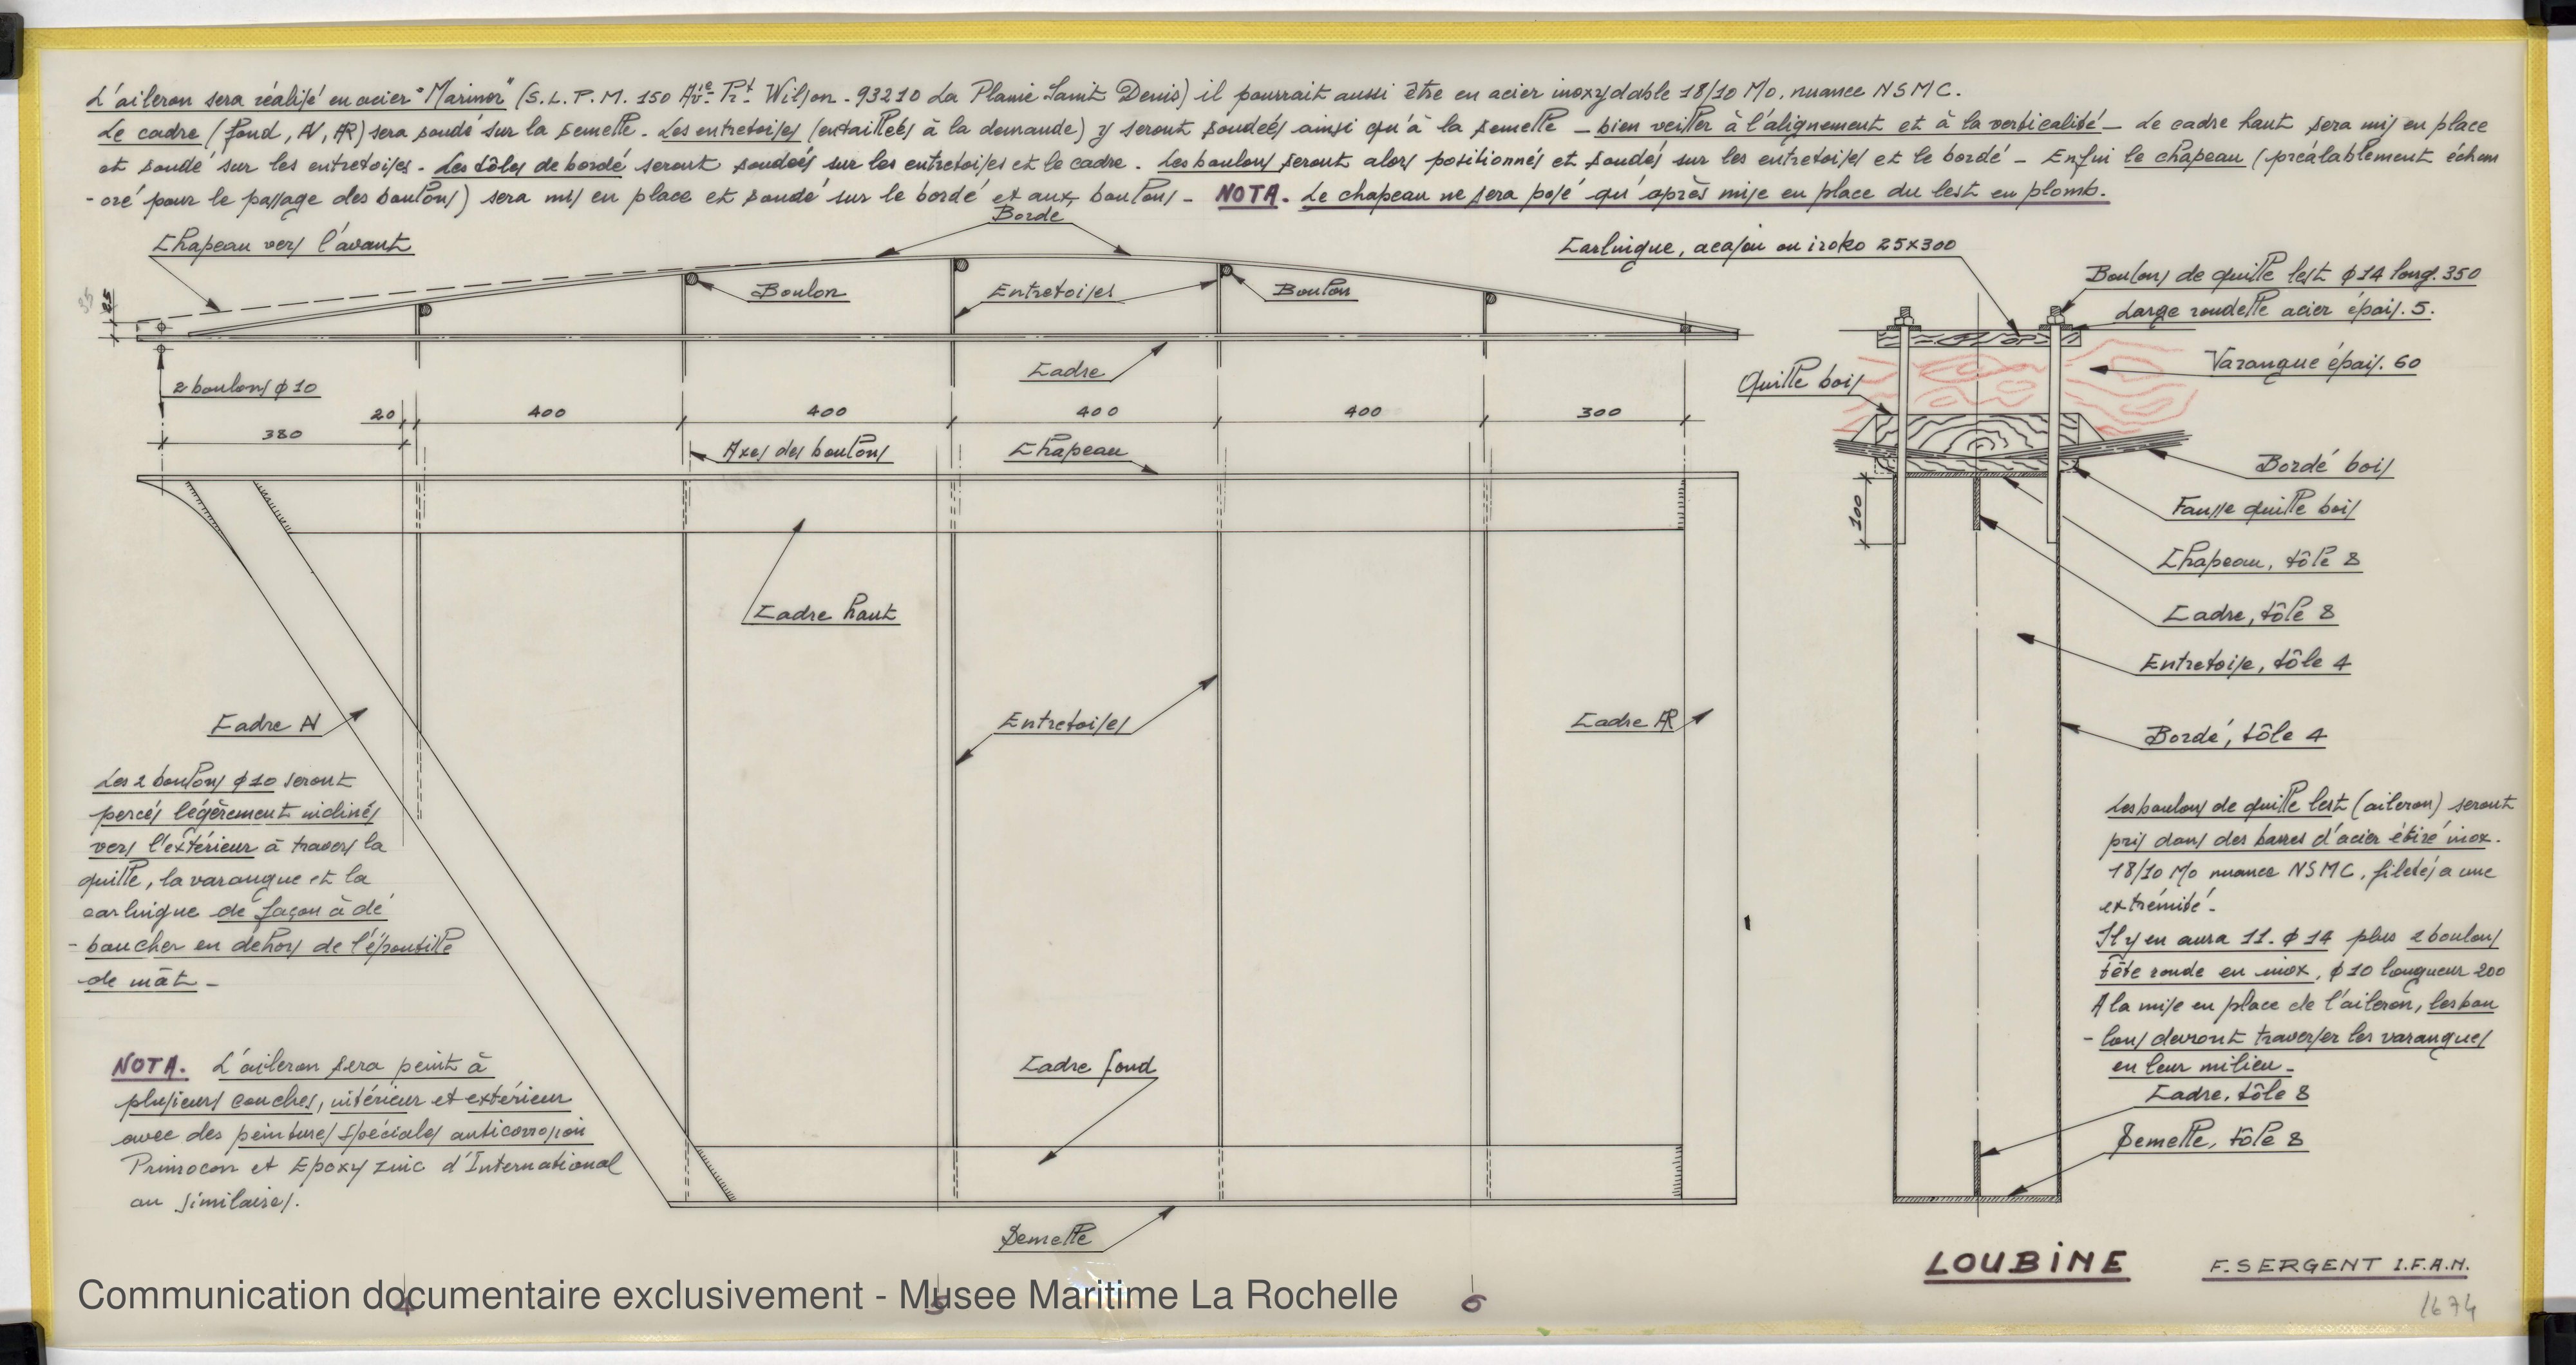 L'aileron sera réalisé en acier "Marinor" (S.L.P.M. 150 Av.ie Pr.t Wilson - 93210 La Plaine Saint Denis) il pourrait aussi être en acier inoxydable 18/10 Mo, nuance NSMC.
Le cadre (fond, AV, AR) sera soudé sur la semelle - Les entretoises (entaillées à la demande) y seront soudées ainsi qu'à la semelle - bien veiller à l'alignement et à la verticalité - Le cadre haut sera mis en place
et soudé sur les entretoises - Les tôles de bordé seront soudées sur les entretoises et le cadre - Les boulons seront alors positionnés et soudés sur les entretoises et le bordé - Enfin le chapeau (préalablement échan
-cré pour le passage des boulons) sera mis en place et soudé sur le bordé et aux boulons - NOTA. Le chapeau ne sera posé qu'après mise en place du lest en plomb.
Bordé
Chapeau vers l'avant
Carlingue, acajou ou iroko 25x300
Boulons de quille lest φ14 long. 350
Large rondelle acier épais. 5.
Boulon
Entretoises
Boulon
Varangue épais. 60
Cadre
Quille bois
2 boulons φ10
20
400
400
400
400
300
380
Axes des boulons
Chapeau
Bordé bois
Fausse quille bois
100
Chapeau, tôle 8
Cadre, tôle 8
Cadre haut
Entretoise, tôle 4
Cadre AV
Entretoises
Cadre AR
Bordé, tôle 4
Les 2 boulons φ10 seront
percés légèrement inclinés
vers l'extérieur à travers la
quille, la varangue et la
carlingue de façon à dé
-boucher en dehors de l'épontille
de mât -
Les boulons de quille lest (aileron) seront
pris dans des barres d'acier étiré inox.
18/10 Mo nuance NSMC, filetés a une
extrémité -
Il y en aura 11. φ14 plus 2 boulons
tête ronde en inox, φ10 longueur 200
A la mise en place de l'aileron, les bou
-lons devront traverser les varangues
en leur milieu -
Cadre, tôle 8
Semelle, tôle 8
NOTA. L'aileron sera peint à
plusieurs couches, intérieur et extérieur
avec des peintures spéciales anticorrosion
Primocon et Epoxy zinc d'International
ou similaires.
Cadre fond
Semelle
LOUBINE
F. SERGENT I.F.A.N.
1674
Communication documentaire exclusivement - Musee Maritime La Rochelle
4
5
6